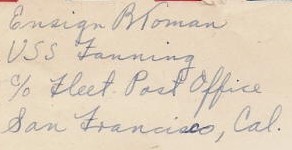 Ensign B Toman
USS Fanning
c/o Fleet Post Office
San Francisco, Cal.